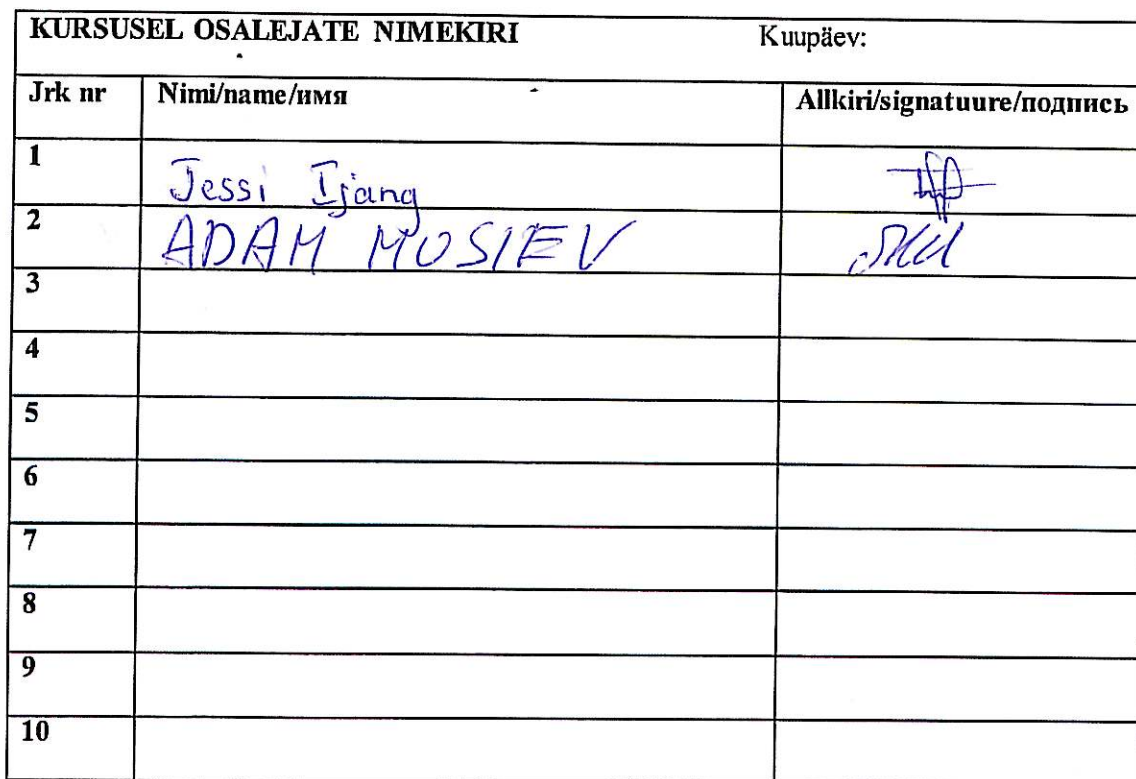 KURSUSEL OSALEJATE NIMEKIRI Kuupäev:
Jrk nr Nimi/name/имя Allkiri/signatuure/подпись
1 Jessi Ijang
2 ADAM MOSIEV
3
4
5
6
7
8
9
10